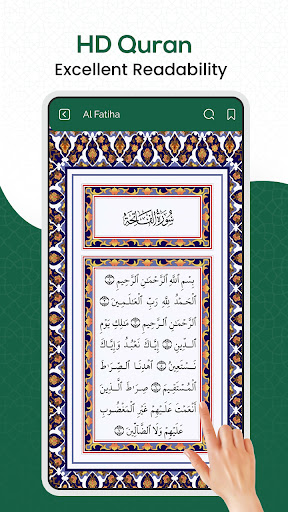 HD Quran
Excellent Readability
Al Fatiha
سُورَةُ الْفَاتِحَةِ
بِسْمِ ٱللَّهِ ٱلرَّحْمَٰنِ ٱلرَّحِيمِ ۝
ٱلْحَمْدُ لِلَّهِ رَبِّ ٱلْعَٰلَمِينَ ۝
ٱلرَّحْمَٰنِ ٱلرَّحِيمِ ۝ مَٰلِكِ يَوْمِ
ٱلدِّينِ ۝ إِيَّاكَ نَعْبُدُ وَإِيَّاكَ
نَسْتَعِينُ ۝ ٱهْدِنَا ٱلصِّرَٰطَ
ٱلْمُسْتَقِيمَ ۝ صِرَٰطَ ٱلَّذِينَ
أَنْعَمْتَ عَلَيْهِمْ غَيْرِ ٱلْمَغْضُوبِ
عَلَيْهِمْ وَلَا ٱلضَّآلِّينَ ۝